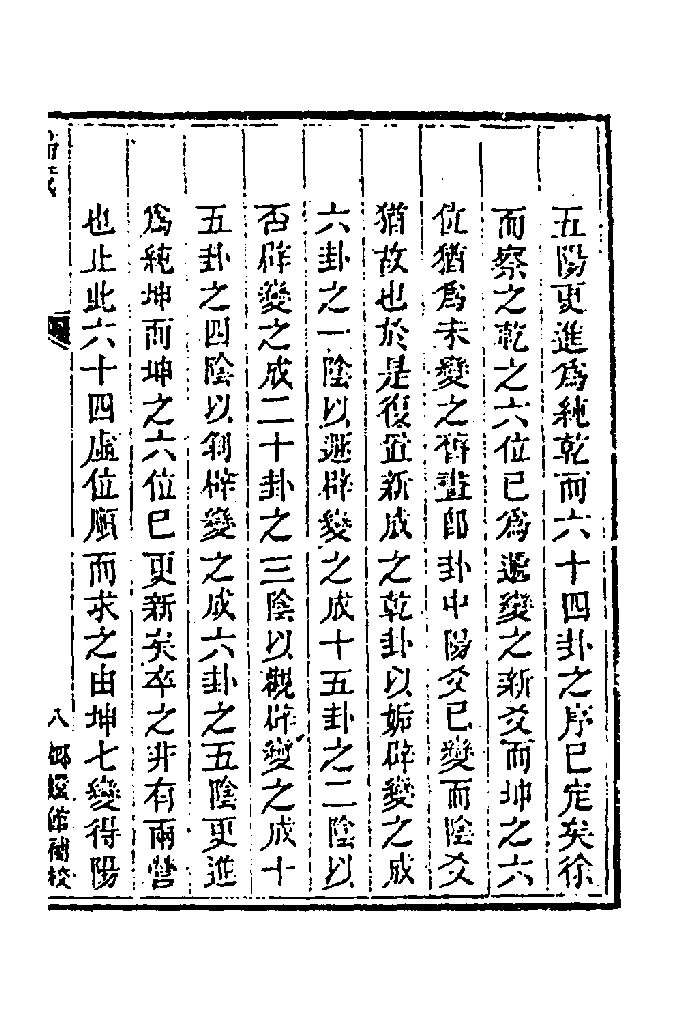 五陽更進爲純乾而六十四卦之序已定矣徐
而察之乾之六位已爲遞變之新爻而坤之六
位猶爲未變之舊畫即卦中陽爻已變而陰爻
猶故也於是復置新成之乾卦以姤辟變之成
六卦之一陰以遯辟變之成十五卦之二陰以
否辟變之成二十卦之三陰以觀辟變之成十
五卦之四陰以剝辟變之成六卦之五陰更進
爲純坤而坤之六位已更新矣卒之非有兩營
也止此六十四虛位順而求之由坤七變得陽
八